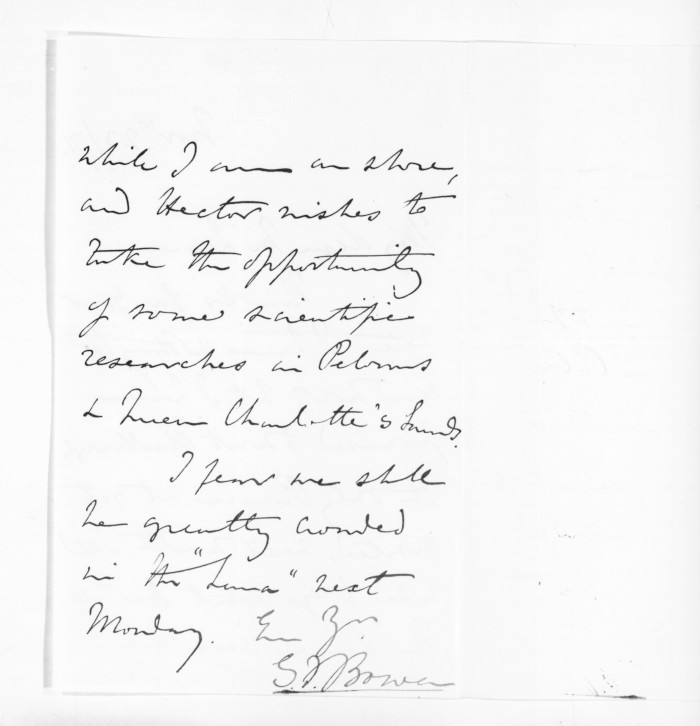 while I am on shore,
and Hector wishes to
take the opportunity
of some scientific
researches in Pelorus
& Queen Charlotte's Sounds.
I fear we shall
be greatly crowded
in the "Luna" next
Monday.
G. F. Bowen